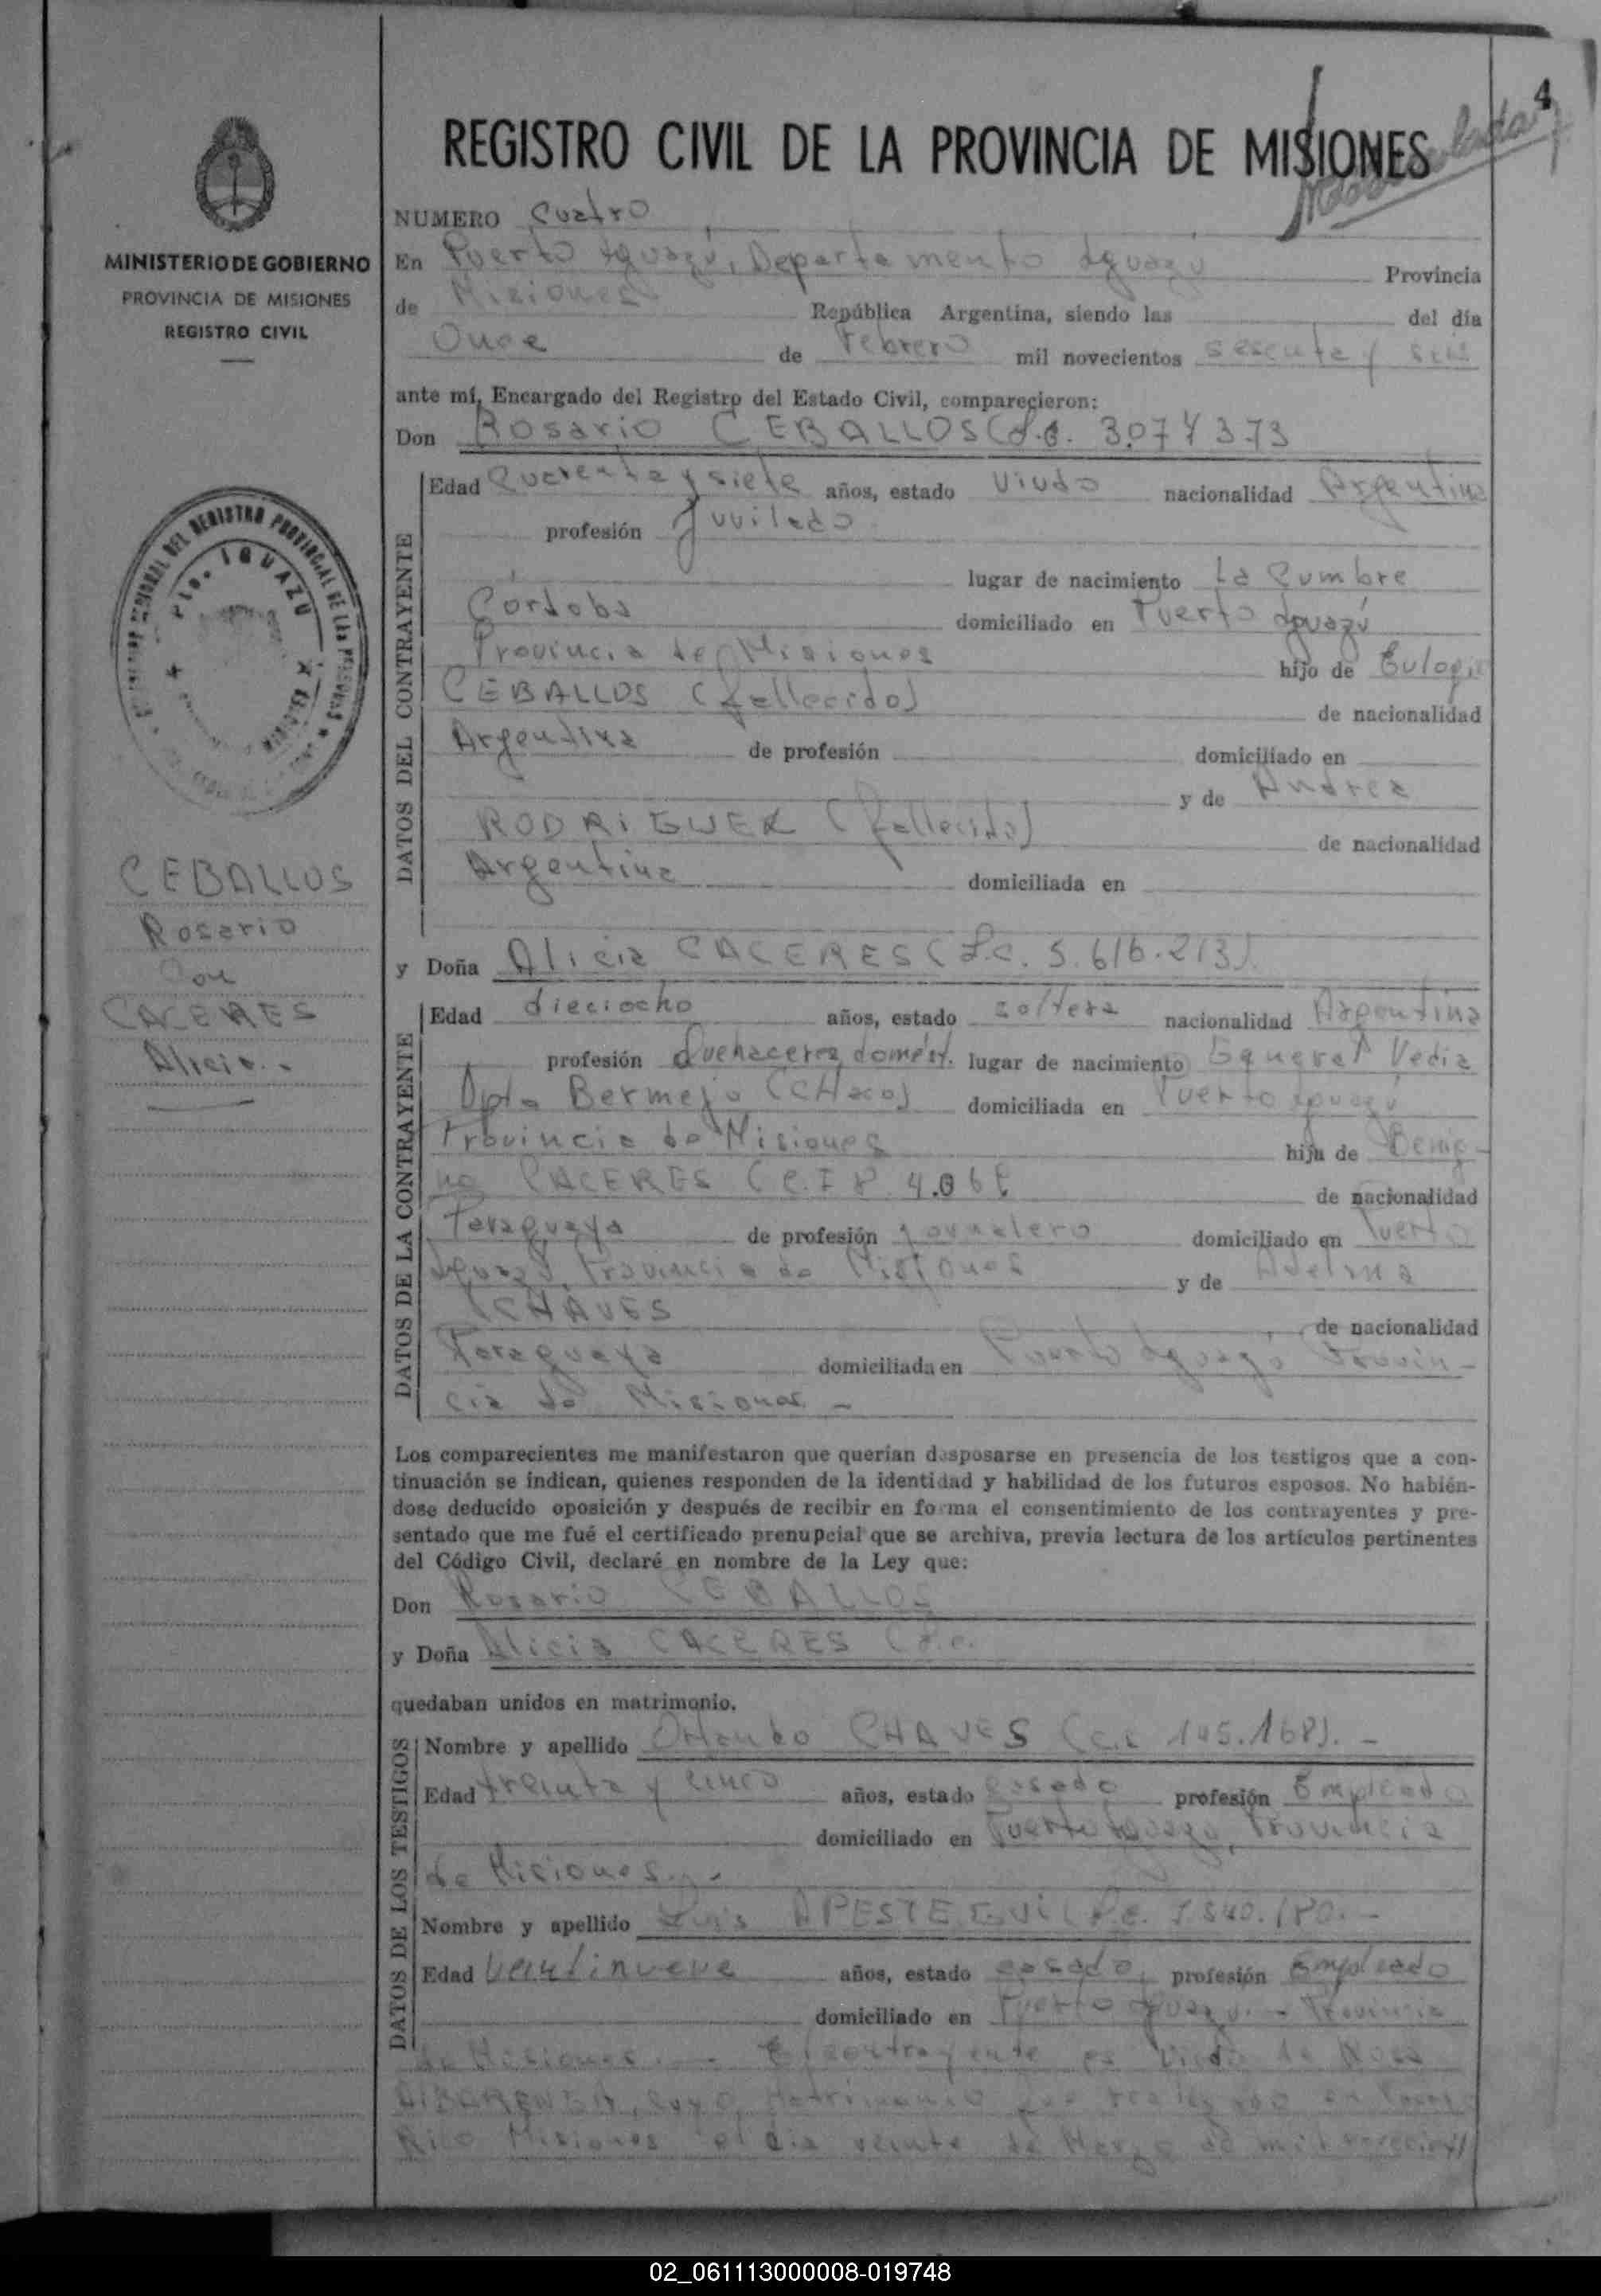 4
REGISTRO CIVIL DE LA PROVINCIA DE MISIONES
MINISTERIO DE GOBIERNO
PROVINCIA DE MISIONES
REGISTRO CIVIL
CEBALLOS
Rosario
con
CACERES
Alicia.-
NUMERO Cuatro
En Puerto Iguazú, Departamento Iguazú Provincia
de Misiones República Argentina, siendo las del día
Once de Febrero mil novecientos sesenta y seis
ante mí, Encargado del Registro del Estado Civil, comparecieron:
Don Rosario CEBALLOS
DATOS DEL CONTRAYENTE
Edad Cuarenta y siete años, estado Viudo nacionalidad Argentina
profesión Juvilado
lugar de nacimiento La Cumbre
Córdoba domiciliado en Puerto Iguazú
Provincia de Misiones hijo de Eulogio
CEBALLOS (fallecido) de nacionalidad
Argentina de profesión domiciliado en
y de Andrea
RODRIGUEZ de nacionalidad
Argentina domiciliada en
y Doña Alicia CACERES (L.C. 5.616.213)
DATOS DE LA CONTRAYENTE
Edad dieciocho años, estado soltera nacionalidad Argentina
profesión Quehaceres domést. lugar de nacimiento General Vedia
Dpto Bermejo (CHaco) domiciliada en Puerto Iguazú
Provincia de Misiones hija de Benig-
no CACERES de nacionalidad
Paraguaya de profesión jornalero domiciliado en Puerto
Iguazú, Provincia de Misiones y de
CHAVES de nacionalidad
Paraguaya domiciliada en Puerto Iguazú Provin-
cia de Misiones -
Los comparecientes me manifestaron que querían desposarse en presencia de los testigos que a con-
tinuación se indican, quienes responden de la identidad y habilidad de los futuros esposos. No habién-
dose deducido oposición y después de recibir en forma el consentimiento de los contrayentes y pre-
sentado que me fué el certificado prenupcial que se archiva, previa lectura de los artículos pertinentes
del Código Civil, declaré en nombre de la Ley que:
Don Rosario CEBALLOS
y Doña Alicia CACERES
quedaban unidos en matrimonio.
DATOS DE LOS TESTIGOS
Nombre y apellido Orlando CHAVES
Edad treinta y cinco años, estado casado profesión Empleado
domiciliado en Puerto Iguazú, Provincia
de Misiones.-
Nombre y apellido Luis APESTEGUI
Edad veintinueve años, estado casado, profesión Empleado
domiciliado en Puerto Iguazú.- Provincia
de Misiones.- El contrayente es Viudo de
cuyo Matrimonio fue realizado en
Rico Misiones el día veinte de Marzo de mil
02_061113000008-019748